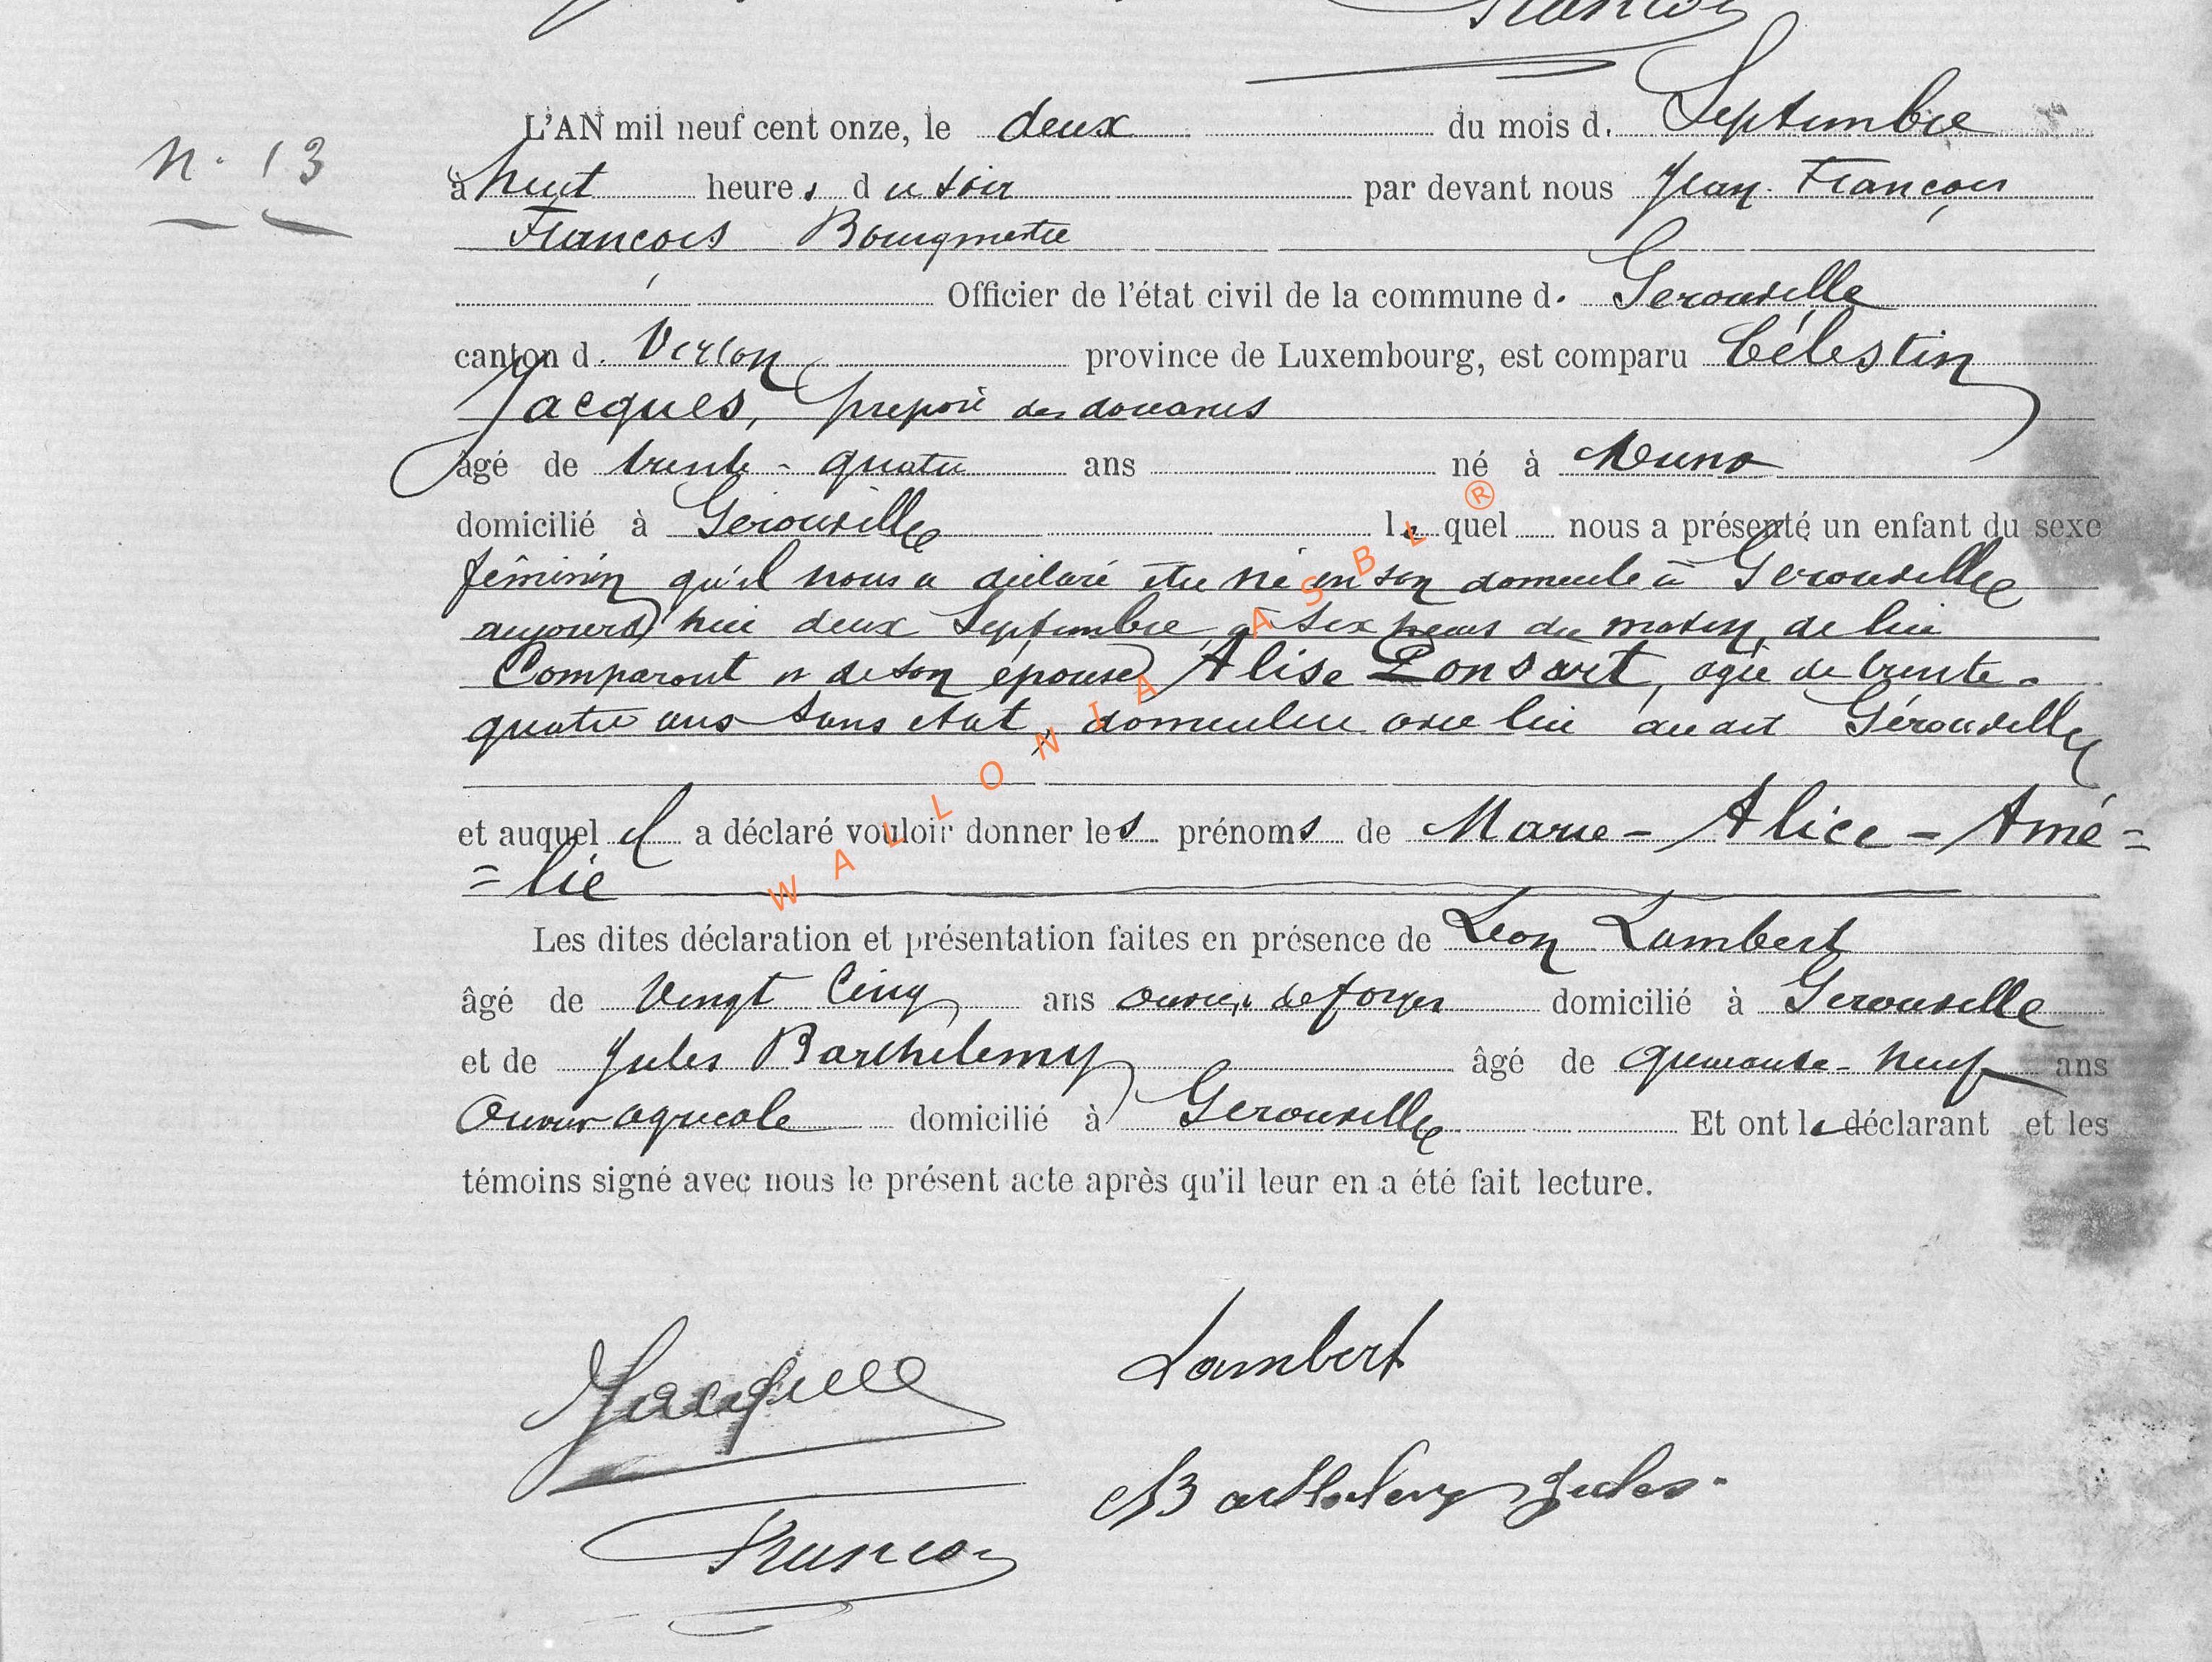 N. 13
L'AN mil neuf cent onze, le deux du mois d. Septembre
à huit heures du soir par devant nous Jean-François
François Bourgmestre
Officier de l'état civil de la commune d. Gerouville
canton d. Virton province de Luxembourg, est comparu Célestin
Jacques, préposé des douanes
âgé de trente-quatre ans né à Muno
domicilié à Gerouville lequel nous a présenté un enfant du sexe
féminin qu'il nous a déclaré être né en son domicile à Gerouville
aujourd'hui deux Septembre, à six heures du matin, de lui
Comparant et de son épouse Alise Ponsart, agée de trente-
quatre ans sans état, domiciliée avec lui au dit Gérouville
et auquel il a déclaré vouloir donner les prénoms de Marie - Alice - Amé=
=lie
Les dites déclaration et présentation faites en présence de Léon Lambert
âgé de Vingt Cinq ans ouvrier de forges domicilié à Gerouville
et de Jules Barthélemy âgé de quarante-neuf ans
Ouvrier agricole domicilié à Gerouville Et ont le déclarant et les
témoins signé avec nous le présent acte après qu'il leur en a été fait lecture.
WALLONIA ASBL ®
Jacques
Lambert
Barthelemy Jules.
François